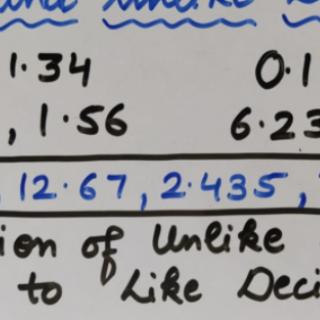 and unlike
1.34 0.1
, 1.56 6.23
12.67, 2.435,
ion of Unlike
to Like Deci